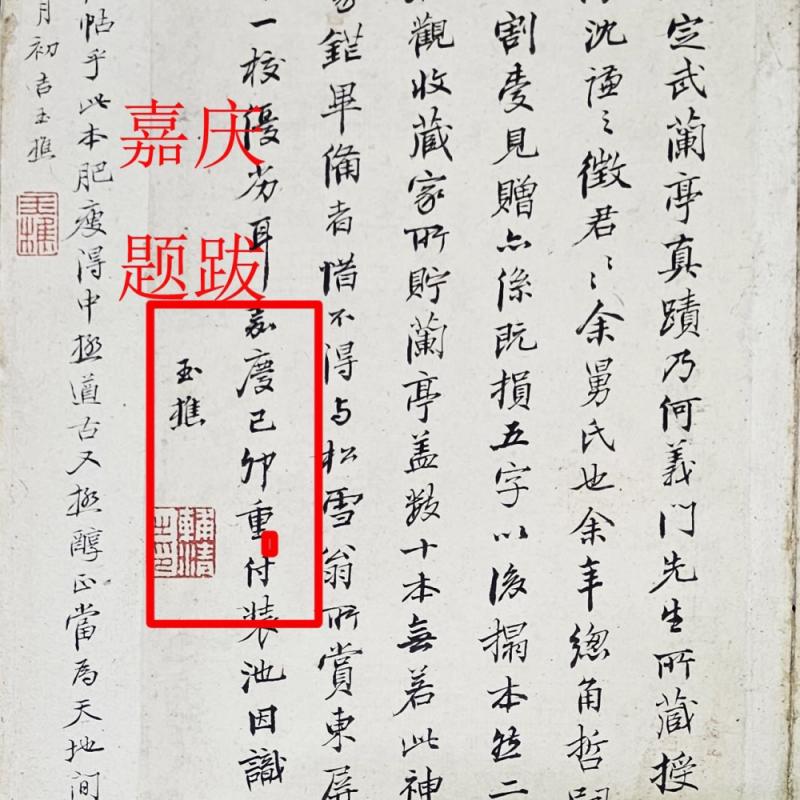 定武蘭亭真蹟乃何義門先生所藏授
沈謐〻徵君〻余舅氏也余年總角哲
割愛見贈亦係既損五字以後搨本然二
觀收蔵家所貯蘭亭蓋數十本無若此神
鑑畢備者惜不得与松雪翁所賞東屏
一校優劣耳嘉慶己卯重付裝池因識
玉樵
帖乎此本肥瘦得中極遒古又極醇正當為天地間
月初吉玉樵
玉樵
嘉庆
题跋